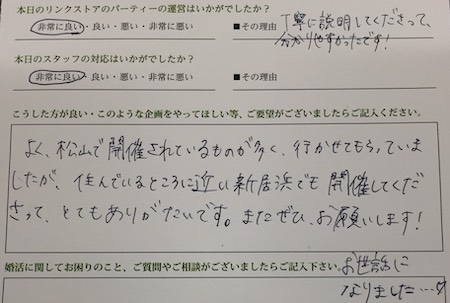 本日のリンクストアのパーティーの運営はいかがでしたか?
非常に良い・良い・悪い・非常に悪い ■その理由
丁寧に説明してくださって、
分かりやすかったです!
本日のスタッフの対応はいかがでしたか?
非常に良い・良い・悪い・非常に悪い ■その理由
こうした方が良い・このような企画をやってほしい等、ご要望がございましたらご記入ください。
よく、松山で開催されているものが多く、行かせてもらっていま
したが、住んでいるところに近い新居浜でも開催してくだ
さって、とてもありがたいです。またぜひ、お願いします!
婚活に関してお困りのこと、ご質問やご相談がございましたらご記入下さい。
お世話に
なりました…♡